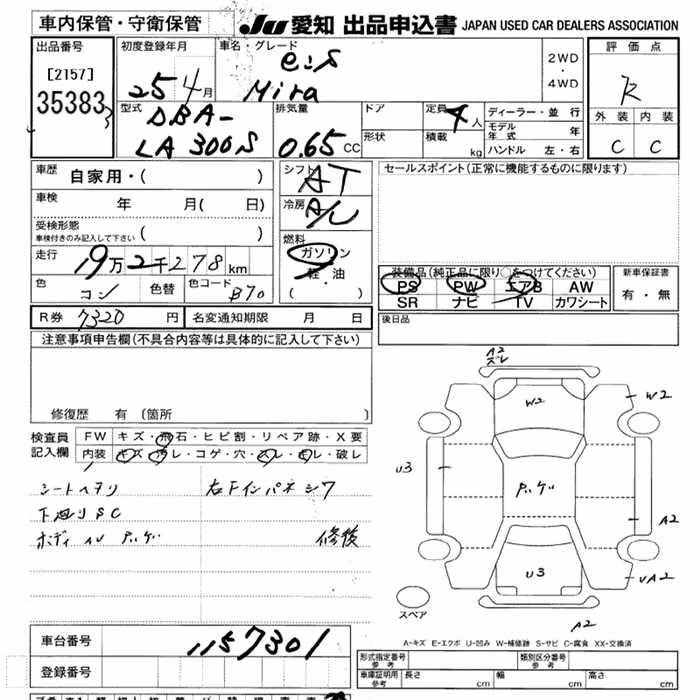 車内保管・守衛保管 JU 愛知 出品申込書 JAPAN USED CAR DEALERS ASSOCIATION
出品番号
[2157]
35383
初度登録年月
25 4月
車名・グレード
e:S
Mira
2WD
・
4WD
評価点
R
外装 内装
C C
型式
DBA-
LA300S
排気量
0.65 CC
ドア
形状
定員 4人
積載 kg
ディーラー・並行
モデル年式 年
ハンドル 左・右
車歴 自家用・( )
車検 年 月( 日)
受検形態
車検付きのみ記入して下さい ( )
走行 19万2千278km
色 コン 色替 色コード B70
シフト AT
冷房 A/C
燃料
ガソリン
軽・油
( )
セールスポイント(正常に機能するものに限ります)
装備品(純正品に限り○をつけてください)
PS PW エアB AW
SR ナビ TV カワシート
新車保証書
有・無
R券 7320 円 名変通知期限 月 日
後日品
注意事項申告欄(不具合内容等は具体的に記入して下さい)
修復歴 有 (箇所 )
検査員
記入欄
FW キズ・飛石・ヒビ割・リペア跡・X要
内装 キズ・汚レ・コゲ・穴・スレ・キレ・破レ
シートヘタリ 右下インパネシワ
下廻りSC
ボディ AU アバゲ 修後
A2
ズレ
W2
W2
U3
A2
U3
UA2
A2
スペア
A-キズ E-エクボ U-凹み W-補修跡 S-サビ C-腐食 XX-交換済
車台番号 1157301
登録番号
形式指定番号
参考
類別区分番号
参考
車庫証明用
参考
長さ cm 幅 cm 高さ cm